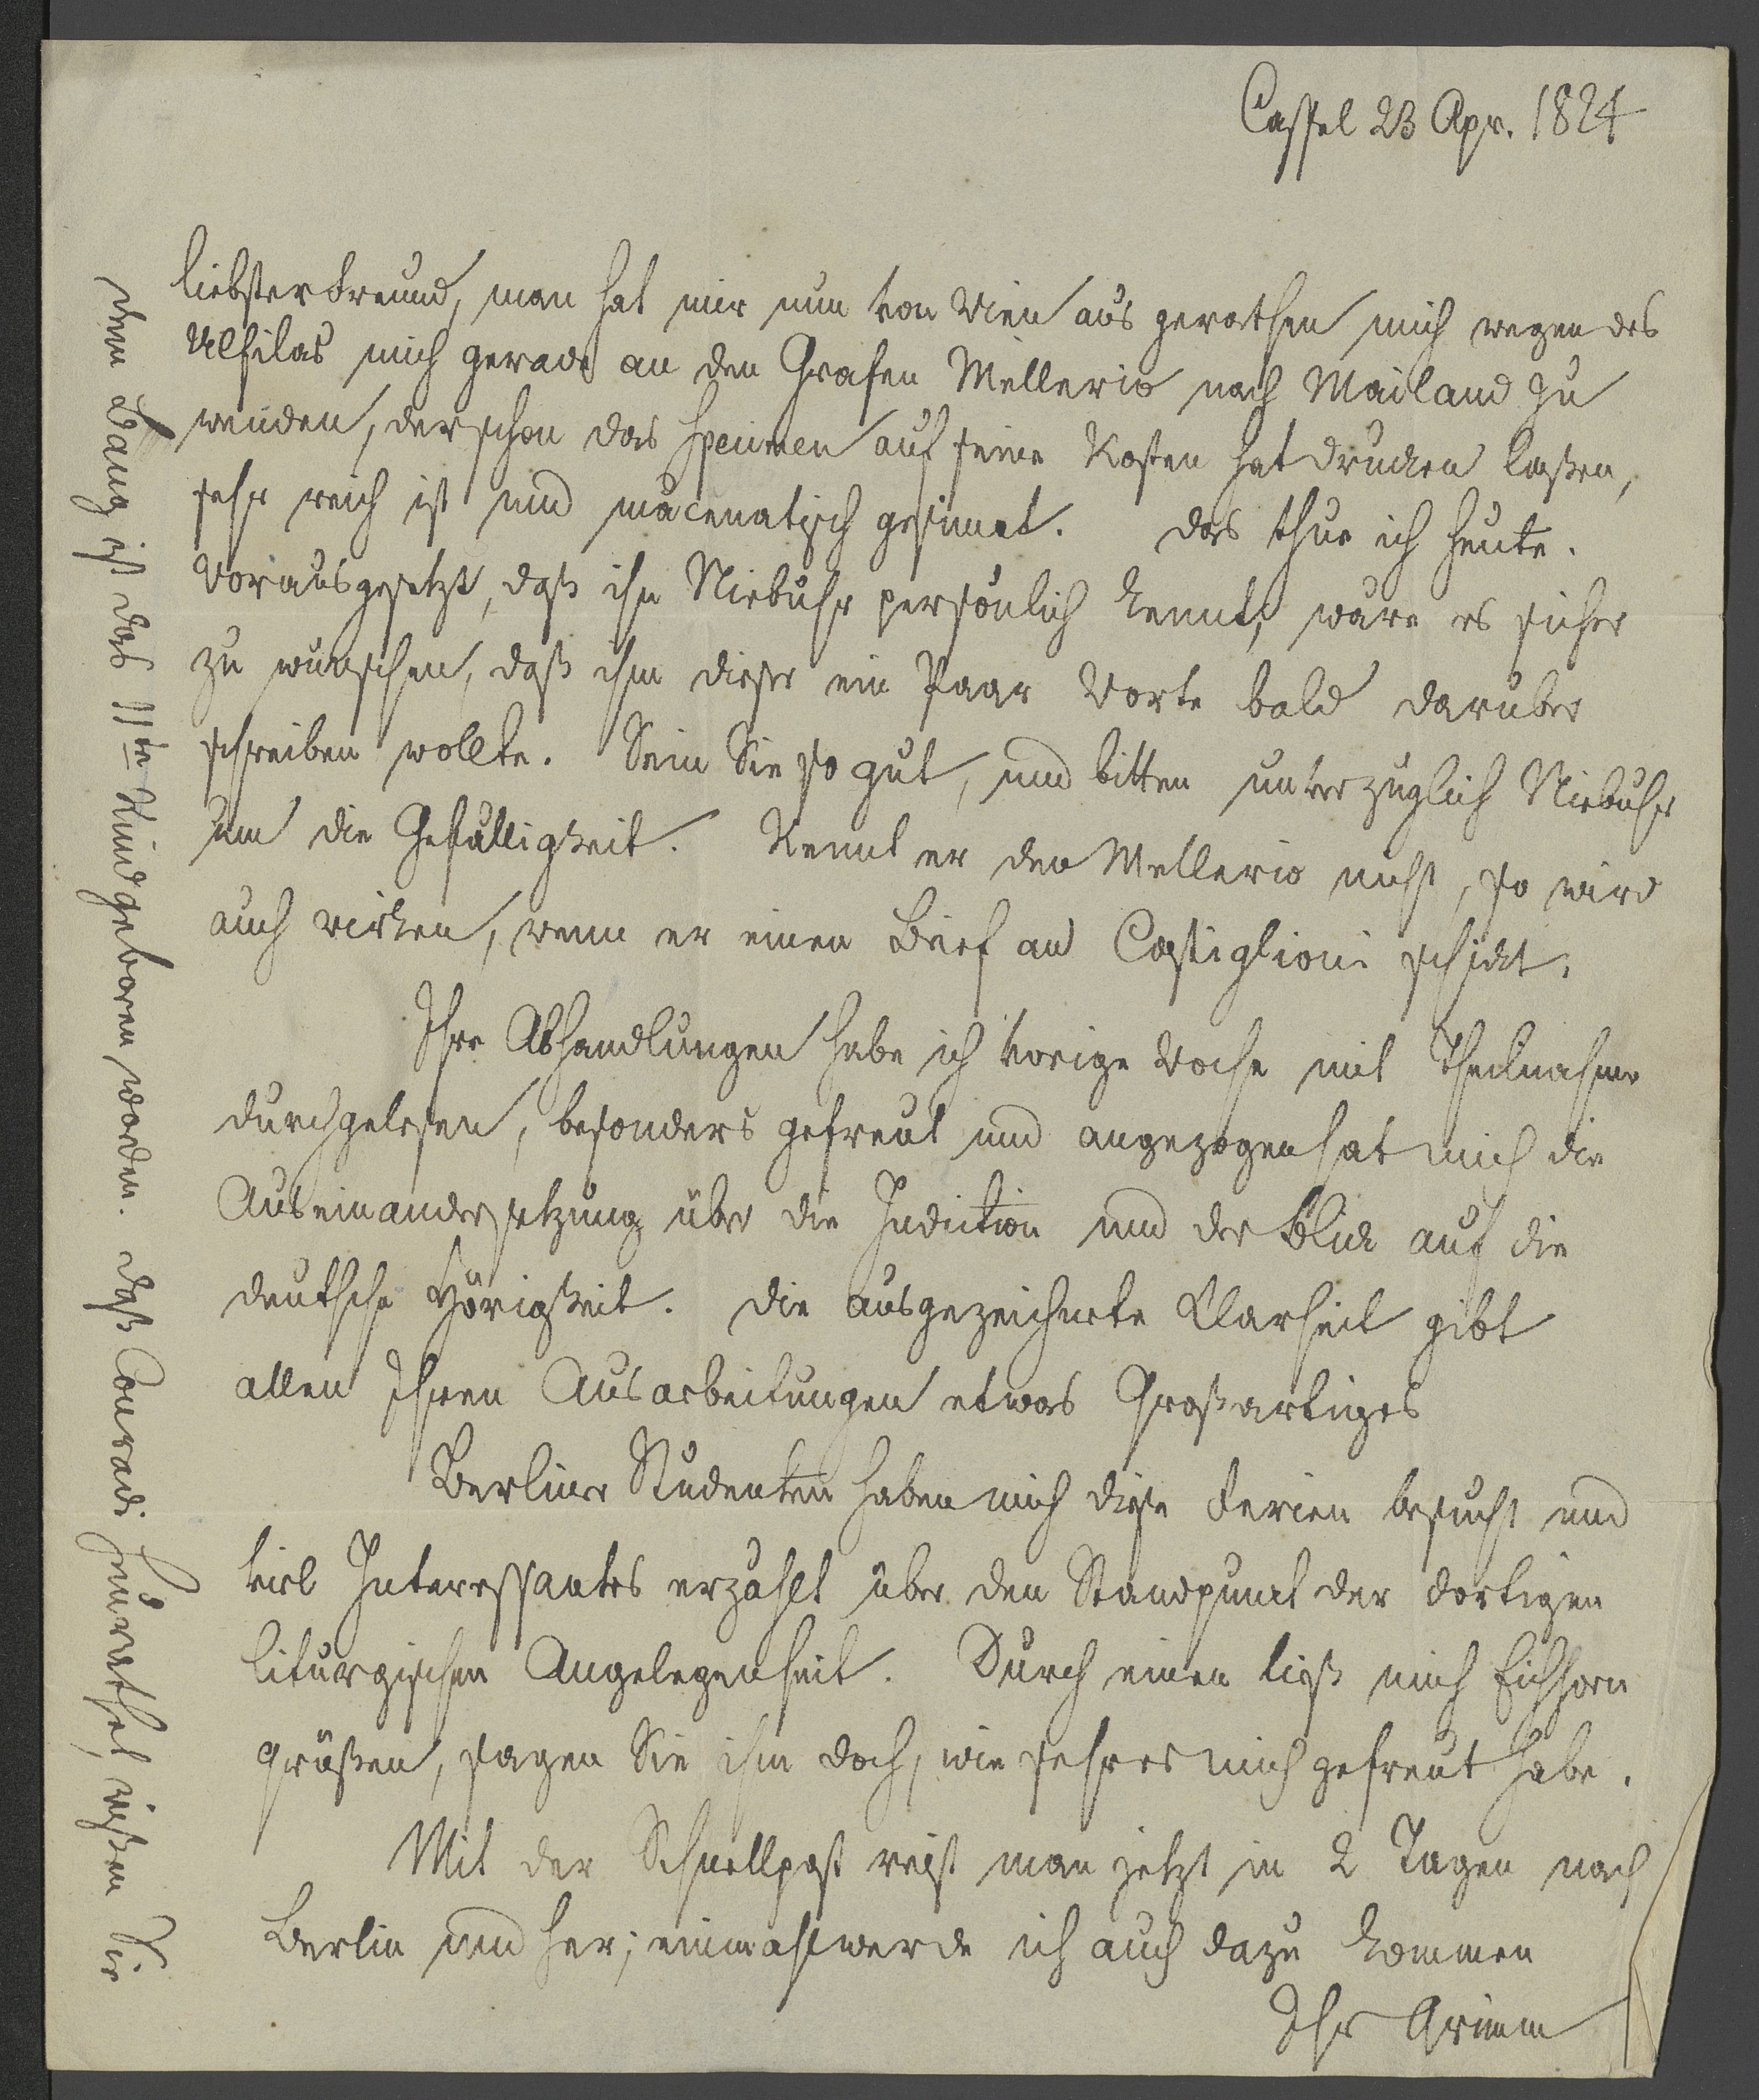 Cassel 23 Apr. 1824
liebster Freund, man hat mir nun von Wien aus gerathen mich wegen des
Ulfilas mich gerade an den Grafen Mellerio nach Mailand zu
wenden, der schon das specimen auf seine Kosten hat drucken laßen,
sehr reich ist und mäcenatisch gesinnt. Das thue ich heute.
Vorausgesetzt, daß ihn Niebuhr persönlich kennt, wäre es sicher
zu wünschen, daß ihm dieser ein Paar Worte bald darüber
schreiben wollte. Sein Sie so gut, und bitten unverzüglich Niebuhr
um die Gefälligkeit. Kennt er den Mellerio nicht, so wird
auch wirken, wenn er einen Brief an Castiglioni schickt.
Ihre Abhandlungen habe ich vorige Woche mit Theilnahme
durchgelesen, besonders gefreut und angezogen hat mich die
Auseinandersetzung über die Indiction und der Blick auf die
deutsche Hörigkeit. Die ausgezeichnete Klarheit gibt
allen Ihren Ausarbeitungen etwas Großartiges
Berliner Studenten haben mich diese Ferien besucht und
viel Interessantes erzählt über den Standpunct der dortigen
liturgischen Angelegenheit. Durch einen ließ mich Eichhorn
grüßen, sagen Sie ihm doch, wie sehr es mich gefreut habe.
Mit der Schnellpost reist man jetzt in 2 Tagen nach
Berlin und her; einmahl werde ich auch dazu kommen
Ihr Grimm
dem Bang ist das 11te Kind geboren worden. daß Conradi heurathet, wißen Sie